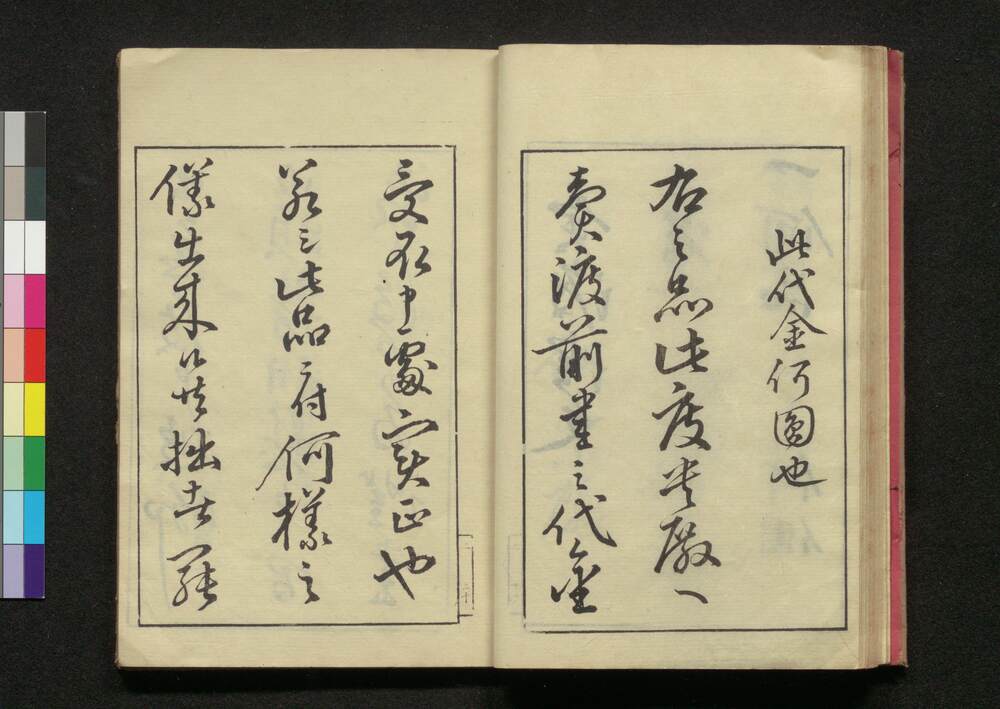 此代金何圓也
右之品此度貴殿へ
賣渡前書之代金
受取申處實正也
若シ此品ニ付何様之
儀出来候共拙者罷